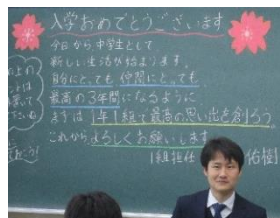 入学おめでとうございます
今日から中学生として
新しい生活が始まります。
自分にとっても 仲間にとっても
最高の3年間になるように
まずは1年1組で最高の思い出を創ろう
これからよろしくお願いします
1組担任
佑樹